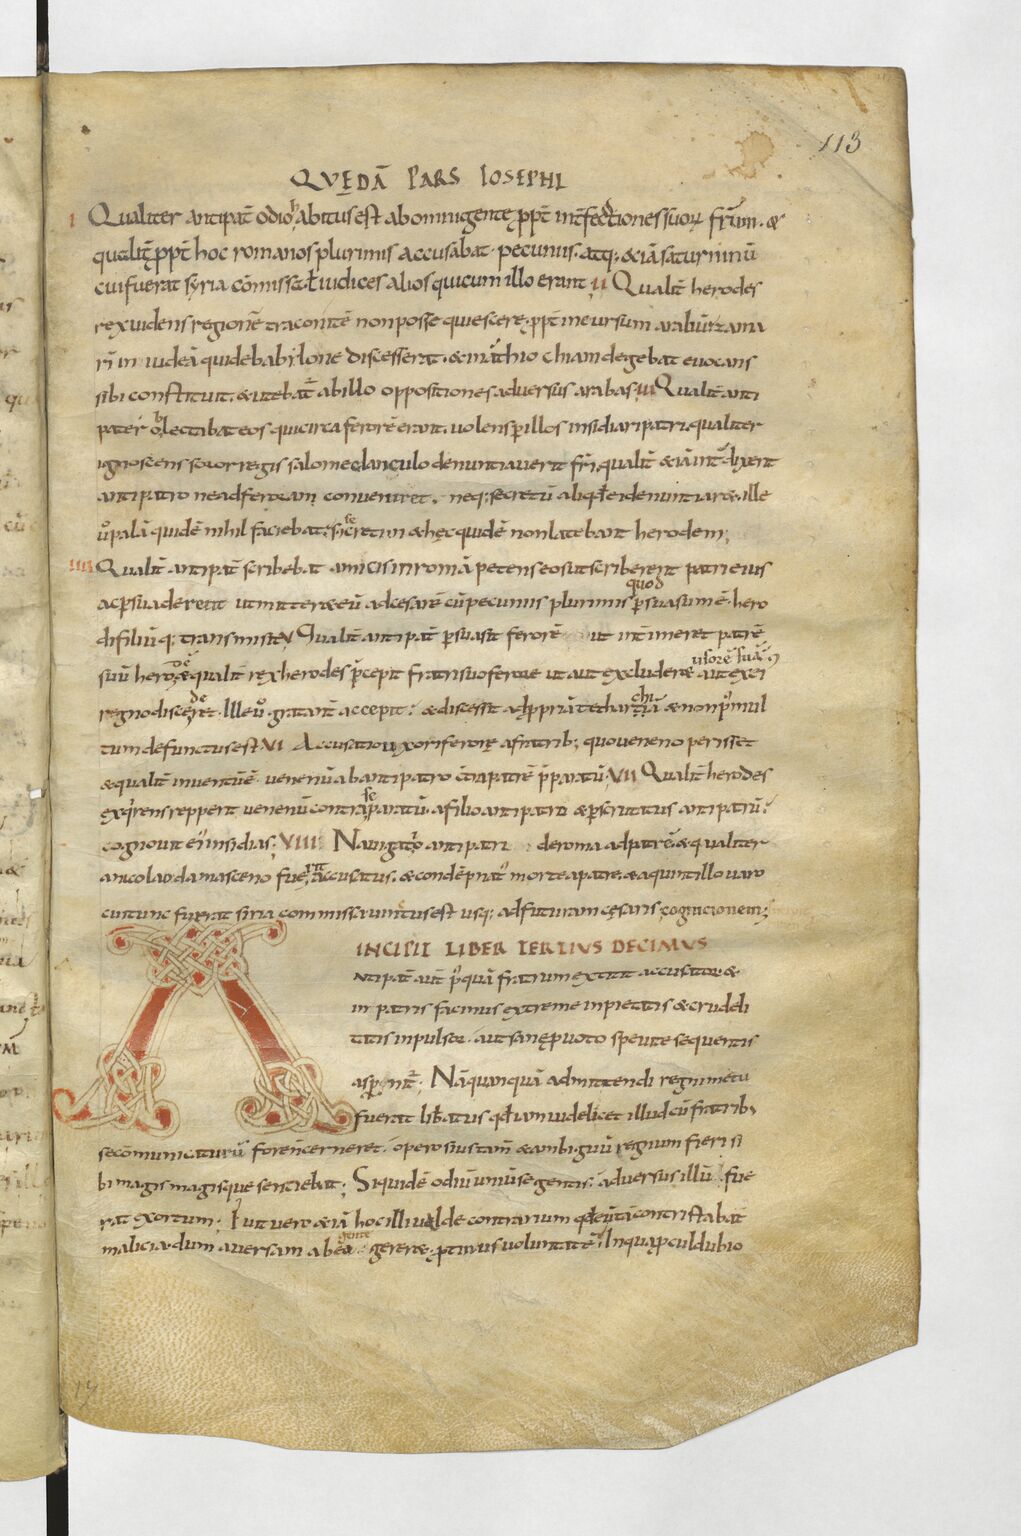 113
QVĘDĀ PARS IOSEPHI
I Qualiter antipat̄ odio habitus est ab omni gente ꝓpt̄ int̄fectiones suoꝝ fr̄um · &
qualit̄ ꝓpt̄ hoc romanos plurimis accusabat · pecuniis · atq; & iā saturninū
cui fuerat syria cōmissa · ł iudices alios qui cum illo erant II Qualit̄ herodes
rex uidens regionē traconitē non posse quiescere · ꝓpt̄ incursum arabū
in iudeā qui de babilone discesserat · & in chiam degebat euocans
sibi constituit · & utebat̄ ab illo oppositiones aduersus arabas III Qualit̄ anti
pater oblectabat eos qui circa ferorē erant · uolens ꝑ illos insidiari patri · qualiter
ignoscens soror regis salome clanculo denuntiauerit fr̄i · qualit̄ & iā int̄dixerit
antipatro ne ad ferocam conueniret · neq; secretū aliqd̄ ei denuntiar& · ille
u͛o palā quidē nihil faciebat · secretim & hęc quidē non latebant herodem;
IIII Qualit̄ antipat̄ scribebat amicis in romā petens eos ut scriberent patri eius
ac ꝑsuaderent ut mitter& eū ad cesarē cū pecuniis plurimis quod ꝑsuasū mē · hero
di filiūq; transmiste V Qualit̄ antipat̄ ꝑsuasit ferorē ut int̄imeret patrē
suū herodē & qualit̄ rex herodes p̄cepit fratri suo ferore ut aut excluder& uxorē suā aut exei
regno discederet · Ille u͛o gratant̄ accepit · & discessit ad ꝓpriā tetrarchiā & non p͛ mul
tum defunctus est VI Accusatio uxori ferorę a fratrib; quo ueneno perisset
& qualit̄ inuentū ē uenenū ab antipatro ct̄ra patrē p̄paratū · VII Qualit̄ herodes
exq͛rens repperit uenenū contra se paratū · a filio antipatro & ꝑscrutatus antipatrū ·
cognouit ei͛ insidias; VIII Nauigatio antipatri de roma ad patrē & qualiter
a nicolao damasceno fuerit accusatus · & condēpnat͛ morte a patre · & a quintillo uaro
cui tunc fuerat siria commissa uinctus est usq; ad futuram cęsaris cognicionem;
INCIPIT LIBER TERTIUS DECIMUS
Antipat̄ aut̄ p͛quā fratrum extitit accusator &
in patris facinus extreme inpietatis & crudeli
tatis inpulsor · aut sanę ꝓ uoto speuite sequentis
Nā quanquā admittendi regni metu
fuerat lib̄atus qd̄ iam uidelicet illud cū fratrib;
se cōmunicaturū foren̄ cerneret · operosius tam̄ & ambiguū regnum fieri si
bi magis magisque sentiebat; Siquidē odiū uniūse gentis · aduersus illū fue
rat exortum; Fuit uero & iā hoc illi ualde contrarium qd̄ eū tā contristabat
malicia · dum auersam ab ea gente gerere · ꝓtinus uoluntatē; In qua ꝓcul dubio